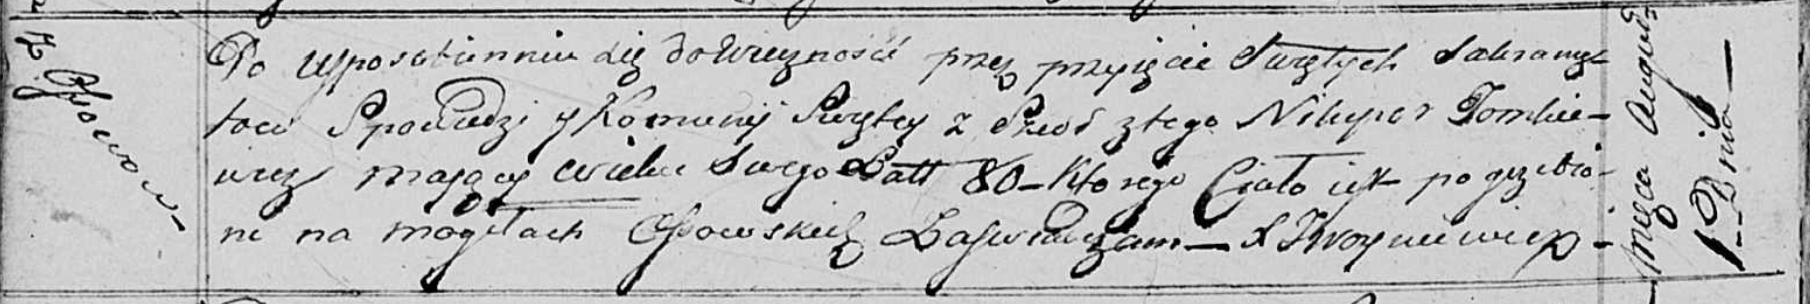 z Osowa
Po Usposobienniu się do Wieczności przez przyięcie Swiętych Sakramę-
tow Spowiedzi y Komunij Swiętey z Swod ztego Nikiper Tomkie-
wicz mający wieku Swego Latt 80 – Ktorego Ciało iest pogrzebio-
ne na mogiłach Osowskich Zaswiadczam – X Woyniewicz –
Mięca Augusta
1 Dnia